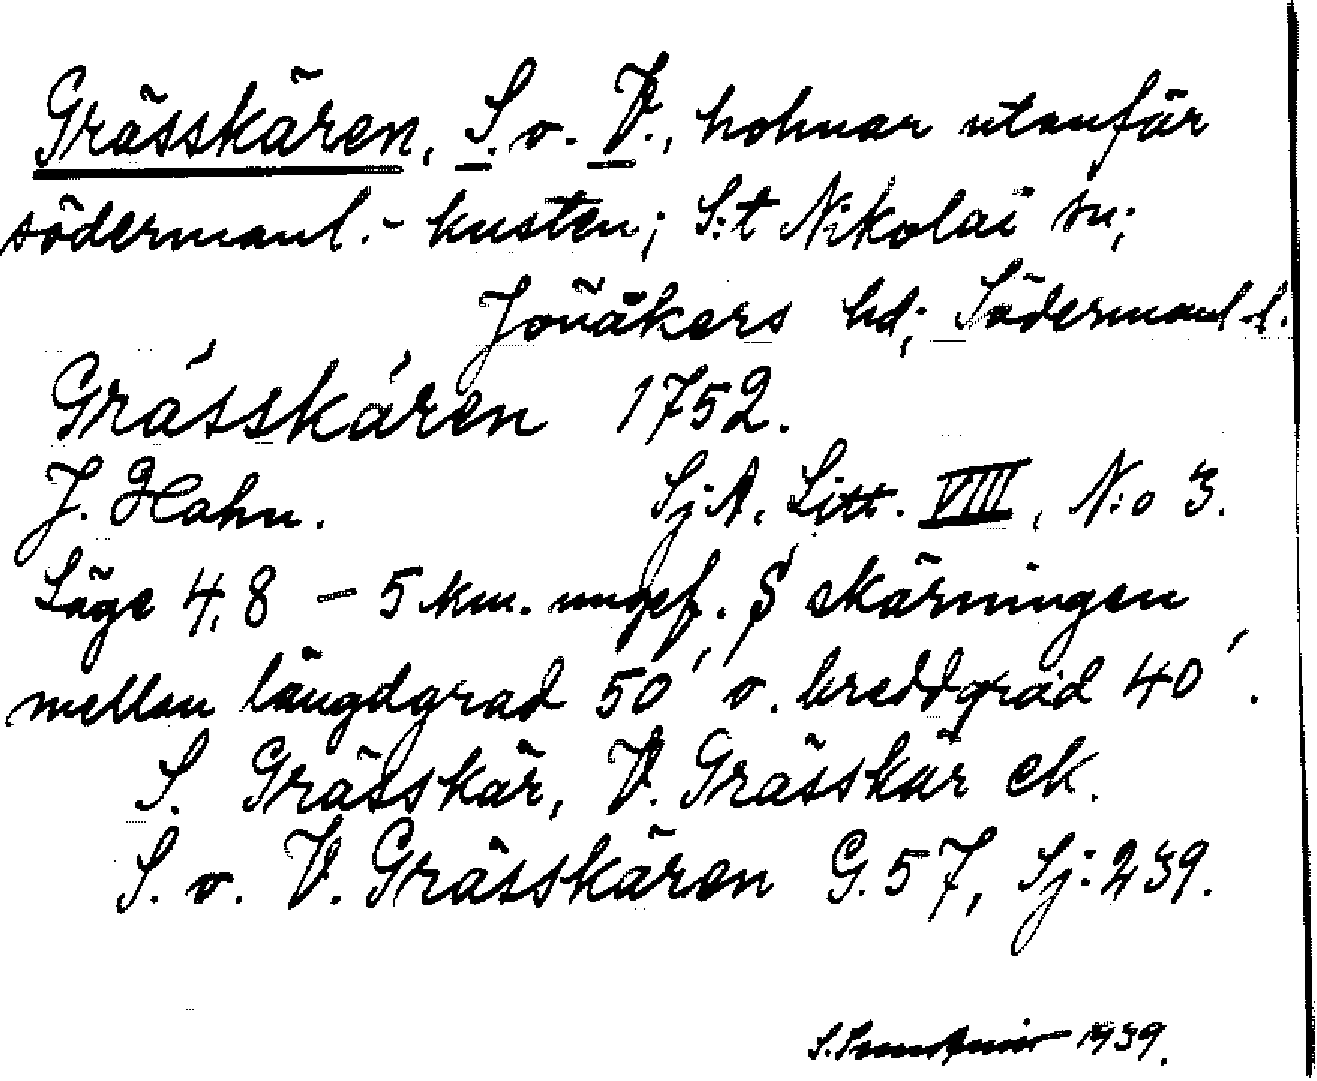 Grässkären, S. o. V., holmar utanför
södermanl.- kusten; S:t Nikolai sn;
Jönåkers hd; Södermanl. l.
Grässkären 1752.
J. Hahn. Sj.A. Litt. VIII, N:o 3.
Läge 4,8 - 5 km. ungef. S skärningen
mellan längdgrad 50' o. breddgrad 40'.
S. Grässkär, V. Grässkär ek.
S. o. V. Grässkären G. 57, Sj: 239.
1939.